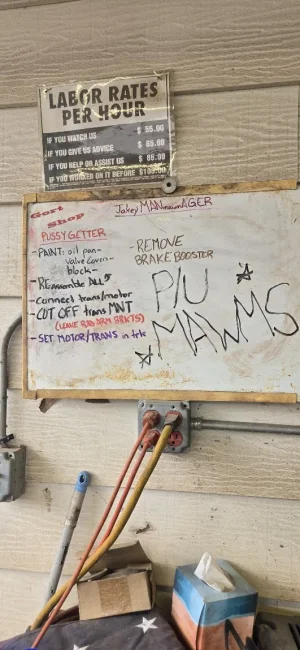 LABOR RATES
PER HOUR
IF YOU WATCH US $ 55.00
IF YOU GIVE US ADVICE $ 65.00
IF YOU HELP OR ASSIST US $ 85.00
IF YOU WORKED ON IT BEFORE
Gort
Shop
PUSSYGETTER
- PAINT: oil pan-
Valve Cover-
block-
- REassemble ALL
- connect trans/motor
- CUT OFF trans MNT
(LEAVE RAD ARM BRKTS)
- SET MOTOR/TRANS in
- REMOVE
BRAKE BOOSTER
P/U
MAWMS